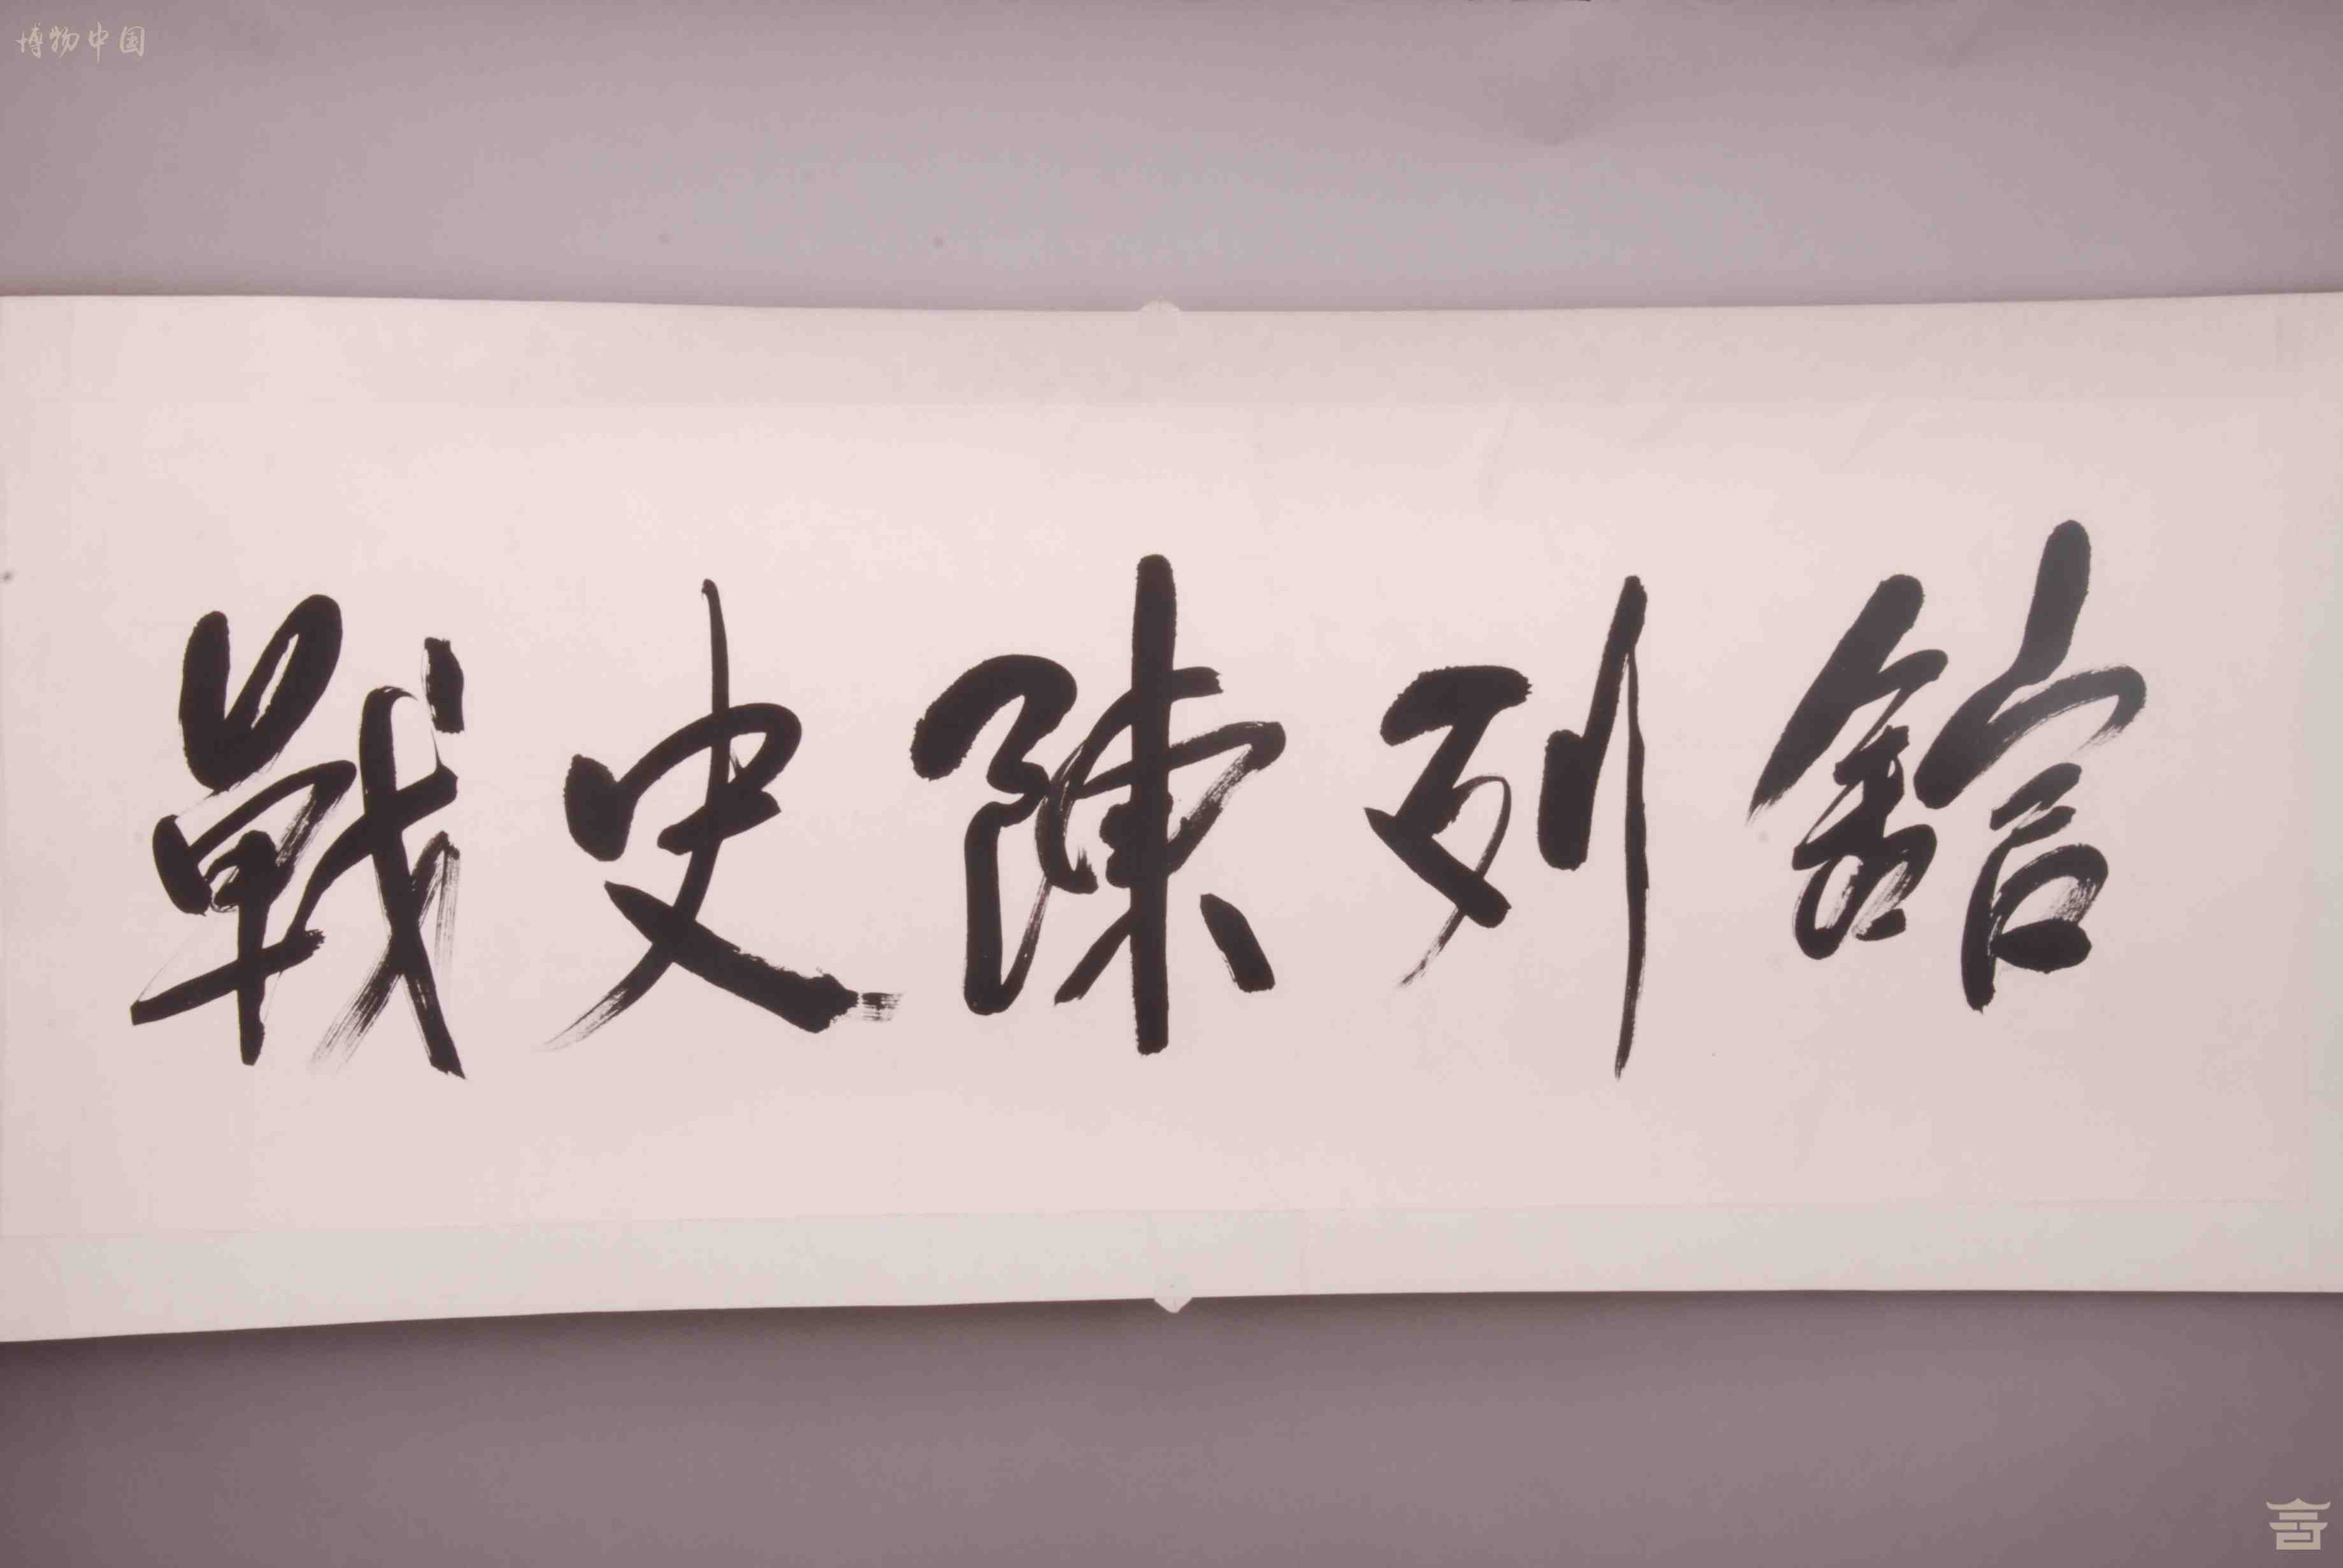 博物中国
戰史陳列舘